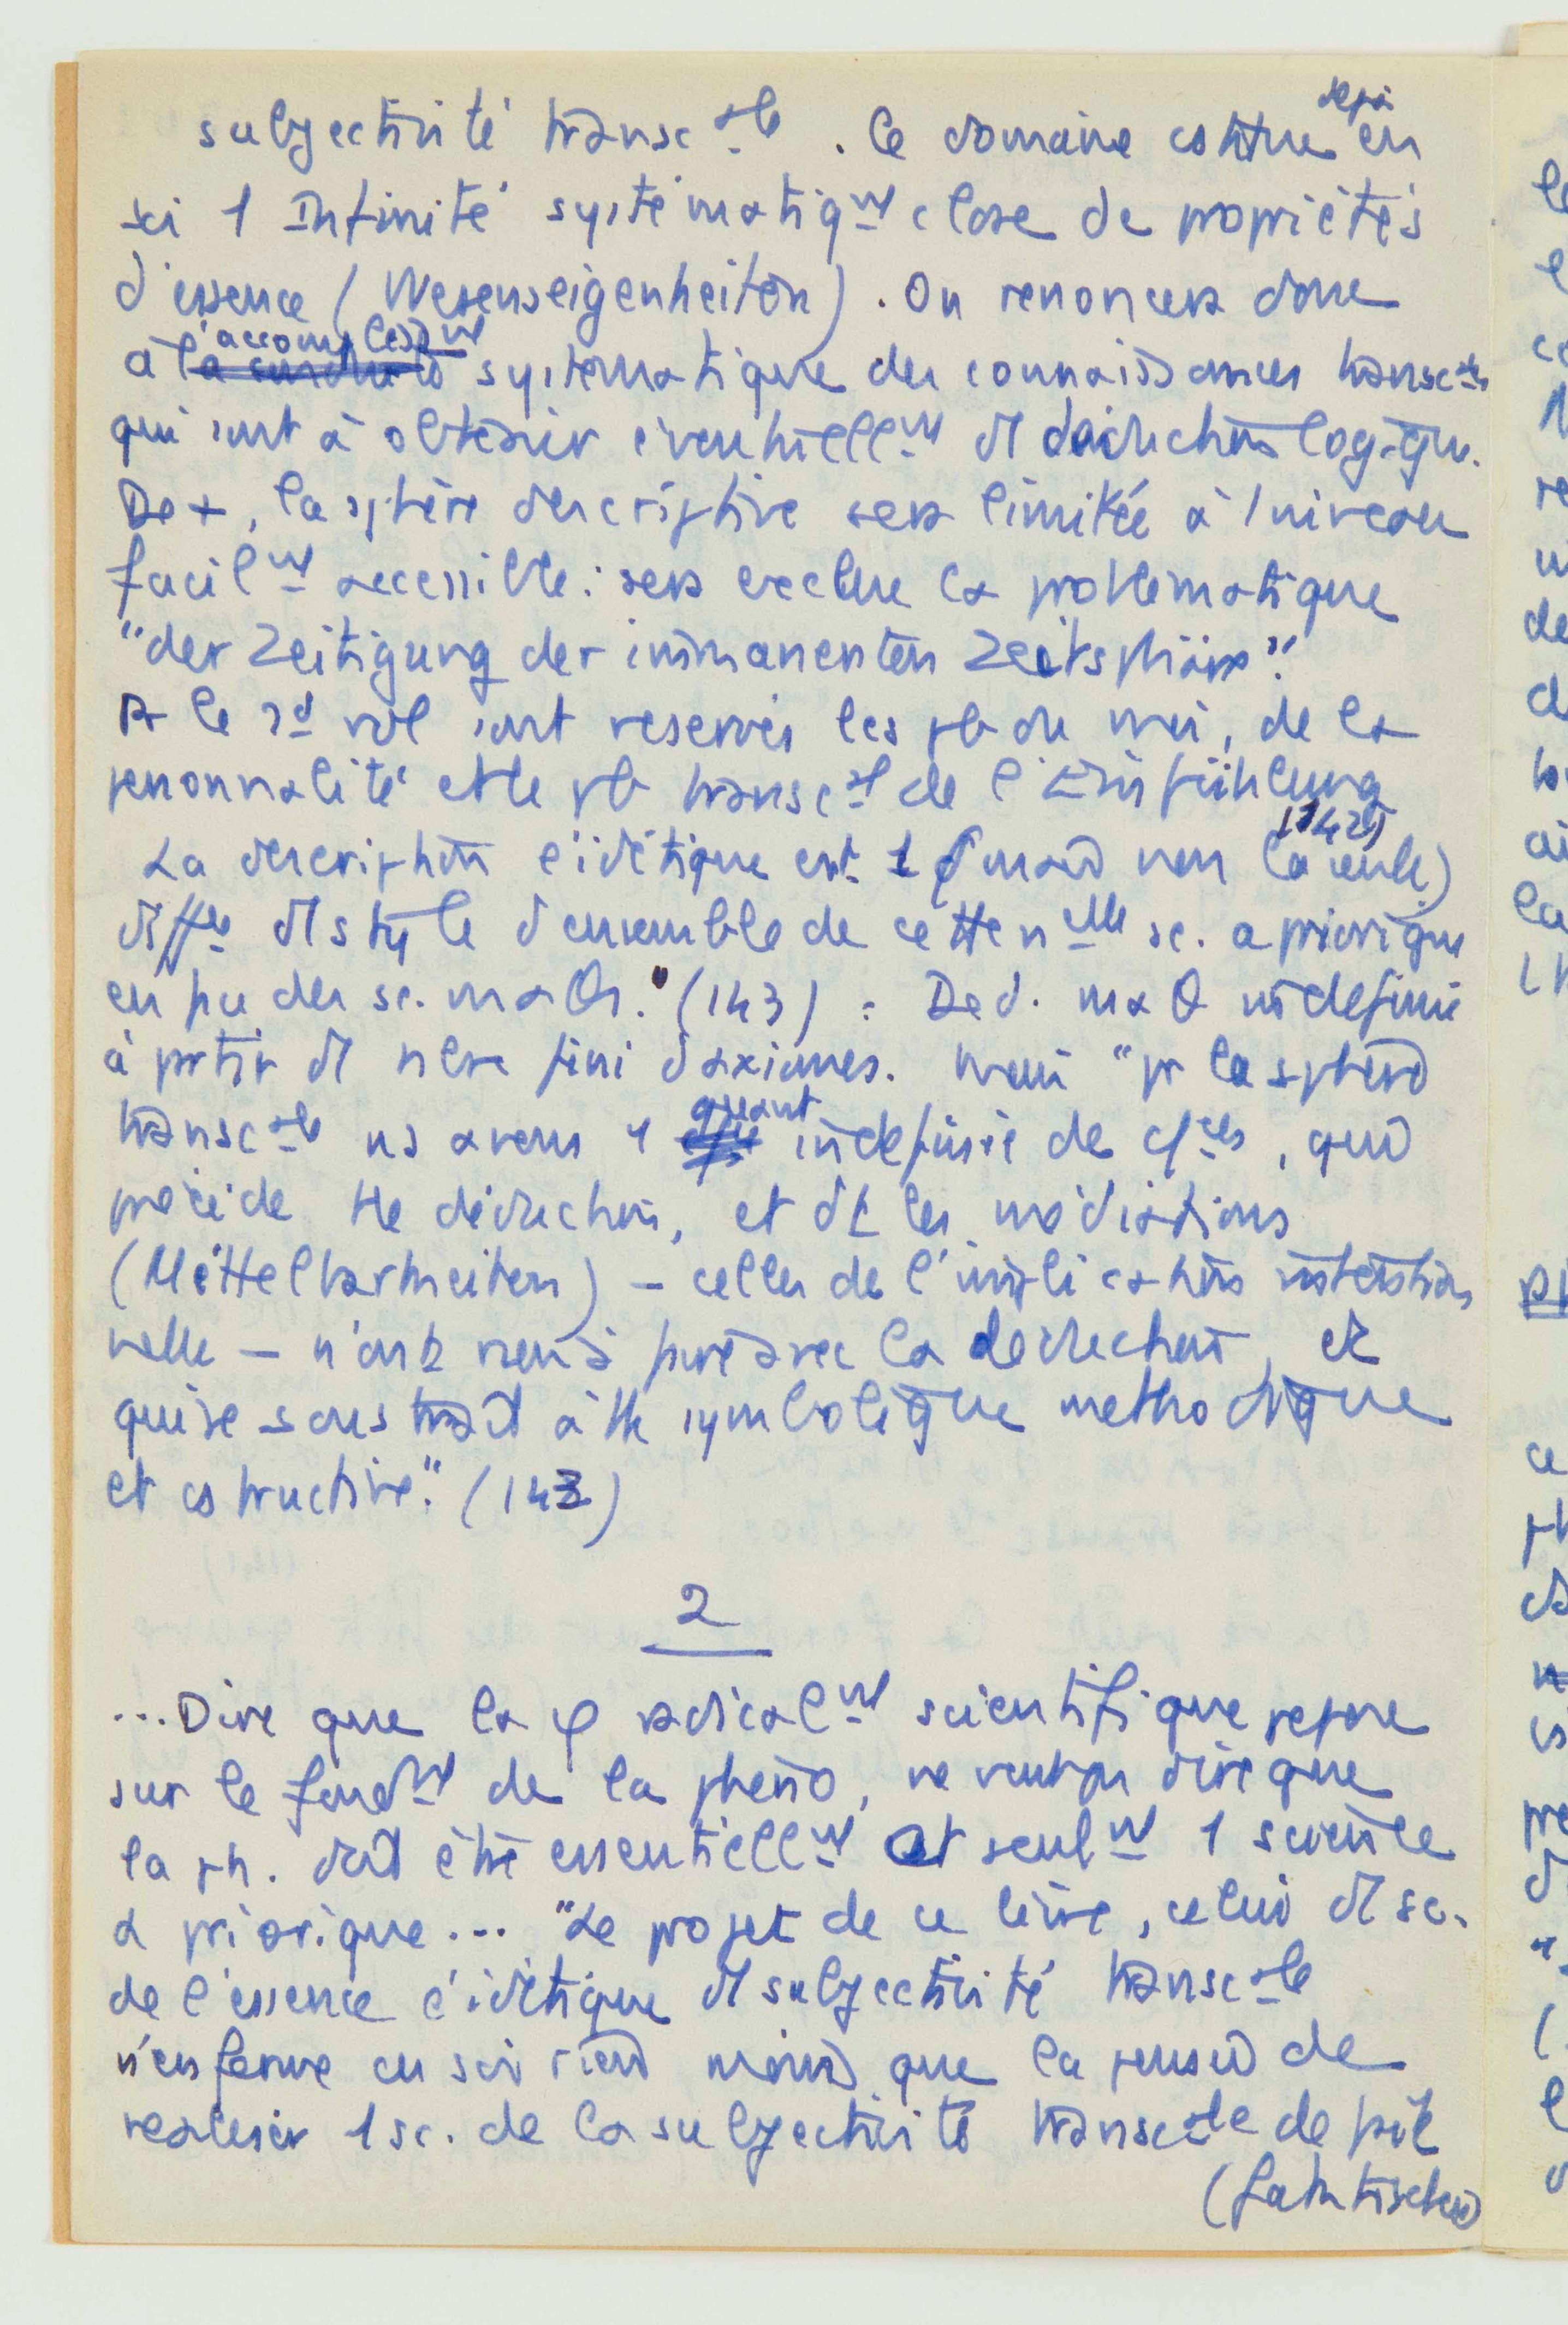 subjectivité transc-ale. Ce domaine contient déjà en
soi 1 Infinité systématiqnt close de propriétés
d'essence (Wesenseigenheiten). On renoncera donc
à l'accomplissnt systématique des connaissances transc-ales
qui sont à obtenir éventuellnt déduction logique.
De +, la sphère descriptive sera limitée à 1 niveau
facilnt accessible : sera exclue la problématique
"der Zeitigung der immanenten Zeitsphäre".
le 2d vol sont réservés les pb du moi, de la
personnalité et le pb transcal de l'Einfühlung
(142)
La description eïdétique est 1 (mais non la seule)
diffce style d'ensemble de cette nelle sc. apriorique
des sc. maθ." (143) : Ded. maθ indéfinie
à partir nbre fini d'axiomes. Mais "pr la sphère
transc-ale ns avons 1 quant indéfinie de , qui
précède tte déduction, et dt les médiations
(Mittelbarkeiten) – celles de l'implication intention
nelle – n'ont rien à faire avec la déduction, et
qui se soustrait à tte symbolique méthodique
et cstructive." (143)
2
...Dire que la φ radicalnt scientifique repose
sur le fondnt de la phéno, ne veut pas dire que
la ph. doit être essentiellnt et seulnt 1 science
a priorique... "Le projet de ce livre, celui sc.
de l'essence eïdétique subjectivité transc-ale
n'enferme en soi rien moins que la pensée de
réaliser 1 sc. de la subjectivité transc-ale de fait
(faktischen